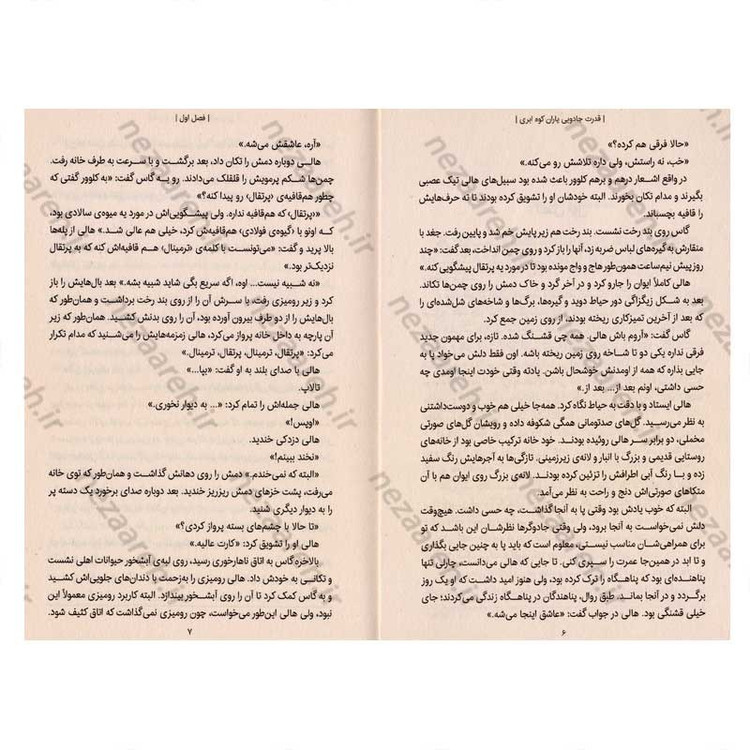 | قدرت جادویی یاران کوه ابری |
«حالا فرقی هم کرده؟»
«خب، نه راستش، ولی داره تلاشش رو می‌کنه.»
در واقع اشعار درهم و برهم کلوور باعث شده بود سبیل‌های هالی تیک عصبی
بگیرند و مدام تکان بخورند. البته خودشان او را تشویق کرده بودند تا ته حرف‌هایش
را قافیه بچسباند.
گاس روی بند رخت نشست. بند رخت هم زیر پایش خم شد و پایین رفت. جغد با
منقارش به گیره‌های لباس ضربه زد، آنها را باز کرد و روی چمن انداخت، بعد گفت: «چند
روز پیش نیم‌ساعت همون‌طور هاج و واج مونده بود تا در مورد یه پرتقال پیشگویی کنه.»
هالی کاملاً ایوان را جارو کرد و در آخر گرد و خاک دمش را روی چمن‌ها تکاند.
بعد به شکل زیگزاگی دور حیاط دوید و گیره‌ها، برگ‌ها و شاخه‌های شل‌شده‌ای را
که بعد از آخرین تمیزکاری ریخته بودند، از روی زمین جمع کرد.
گاس گفت: «آروم باش هالی. همه چی قشنگ شده. تازه، برای مهمون جدید
فرقی نداره یکی دو تا شاخه روی زمین ریخته باشه. اون فقط دلش می‌خواد پا به
جایی بذاره که همه از اومدنش خوشحال باشن. یادته وقتی خودت اینجا اومدی چه
حسی داشتی، اونم بعد از... بعد از.»
هالی ایستاد و با دقت به حیاط نگاه کرد. همه‌جا خیلی هم خوب و دوست‌داشتنی
به نظر می‌رسید. گل‌های صدتومانی همگی شکوفه داده و رویشان گل‌های صورتی
مخملی، دو برابر سر هالی روئیده بودند. خود خانه ترکیب خاصی بود از خانه‌های
روستایی قدیمی و بزرگ با انبار و لانه‌ی زیرزمینی. تازگی‌ها به آجرهایش رنگ سفید
زده و با رنگ آبی اطرافش را تزئین کرده بودند. لانه‌ی بزرگ روی ایوان هم با آن
متکاهای صورتی‌اش دنج و راحت به نظر می‌آمد.
البته که خوب یادش بود وقتی پا به آنجا گذاشت، چه حسی داشت. هیچ‌وقت
دلش نمی‌خواست به آنجا برود، ولی وقتی جادوگرها نظرشان این باشد که تو
برای همراهی‌شان مناسب نیستی، معلوم است که باید پا به چنین جایی بگذاری
و تا ابد در همین‌جا عمرت را سپری کنی. تا جایی که هالی می‌دانست، چارلی تنها
پناهنده‌ای بود که پناهگاه را ترک کرده بود، ولی هنوز امید داشت که او یک روز
برگردد و در آنجا بماند. طبق روال، پناهندگان در پناهگاه زندگی می‌کردند؛ جای
خیلی قشنگی بود. هالی در جواب گفت: «عاشق اینجا می‌شه.»
۶
| فصل اول |
«آره، عاشقش می‌شه.»
هالی دوباره دمش را تکان داد، بعد برگشت و با سرعت به طرف خانه رفت.
چمن‌ها شکم پرمویش را قلقلک می‌دادند. رو به گاس گفت: «به کلوور گفتی که
چطور هم‌قافیه‌ی (پرتقال) رو پیدا کنه؟»
«(پرتقال) که هم‌قافیه نداره. ولی پیشگویی‌اش در مورد یه میوه‌ی سالادی بود،
که اونو با (گیوه‌ی فولادی) هم‌قافیه‌ش کرد، خیلی هم عالی شد.» هالی از پله‌ها
بالا پرید و گفت: «می‌تونست با کلمه‌ی (ترمینال) هم قافیه‌اش کنه که به پرتقال
نزدیک‌تر بود.»
«نه شبیه نیست... اوه، اگه سریع بگی شاید شبیه بشه.» بعد بال‌هایش را باز
کرد و زیر رومیزی رفت، با سرش آن را از روی بند رخت برداشت و همان‌طور که
بال‌هایش را از دو طرف بیرون آورده بود، آن را روی بدنش کشید. همان‌طور که زیر
آن پارچه به داخل خانه پرواز می‌کرد، هالی زمزمه‌هایش را می‌شنید که مدام تکرار
می‌کرد: «پرتقال، ترمینال، پرتقال، ترمینال.»
هالی با صدای بلند به او گفت: «بپا...»
تالاپ.
هالی جمله‌اش را تمام کرد: «... به دیوار نخوری.»
«اوپس!»
هالی دزدکی خندید.
«نخند ببینم!»
«البته که نمی‌خندم.» دمش را روی دهانش گذاشت و همان‌طور که توی خانه
می‌رفت، پشت خزهای دمش ریزریز خندید. بعد دوباره صدای برخورد یک دسته پر
را به دیوار دیگری شنید.
«تا حالا با چشم‌های بسته پرواز کردی؟»
هالی او را تشویق کرد: «کارت عالیه.»
بالاخره گاس به اتاق ناهارخوری رسید، روی لبه‌ی آبشخور حیوانات اهلی نشست
و تکانی به خودش داد. هالی رومیزی را به‌زحمت با دندان‌های جلویی‌اش کشید
و به گاس کمک کرد تا آن را روی آبشخور بیندازد. البته کاربرد رومیزی معمولاً این
نبود، ولی هالی این‌طور می‌خواست، چون رومیزی نمی‌گذاشت که اتاق کثیف شود.
۷
nezaareh.ir